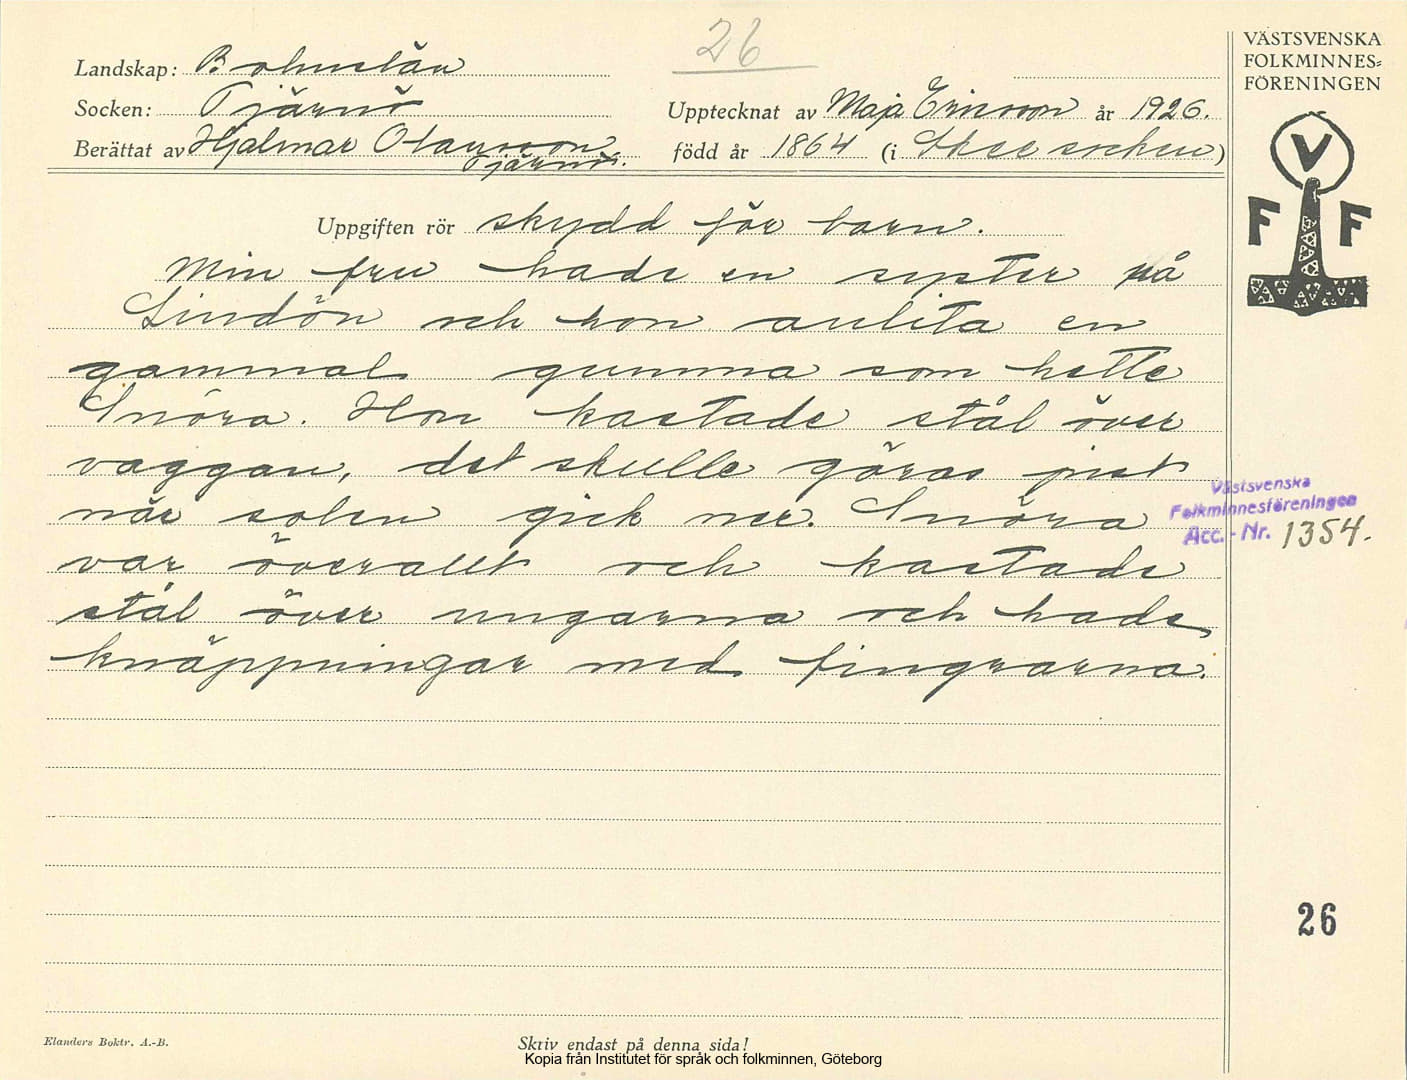 26
Landskap: Bohuslän
Socken: Tjärnö
Upptecknat av Maja Ericsson år 1926.
Berättat av Hjalmar Olausson
Tjärnö.
född år 1864 (i Skee socken)
VÄSTSVENSKA
FOLKMINNES-
FÖRENINGEN
V
F F
Uppgiften rör skydd för barn.
Min fru hade en syster på
Lindön och hon anlita en
gammal gumma som hette
Snöra. Hon kastade stål över
vaggan, det skulle göras just
när solen gick ner. Snöra
var överallt och kastade
stål över ungarna och hade
knäppningar med fingrarna.
Västsvenska
Folkminnesföreningen
Acc.-Nr. 1354.
26
Elanders Boktr. A.-B.
Skriv endast på denna sida!
Kopia från Institutet för språk och folkminnen, Göteborg